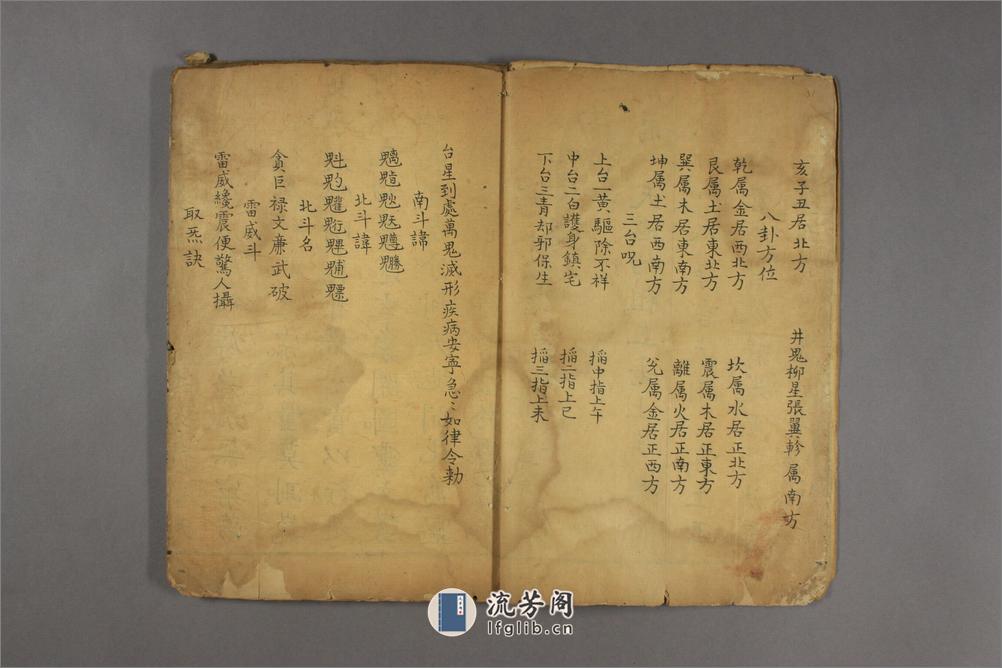 亥子丑居北方 井鬼柳星張翼軫属南方
八卦方位
乾属金居西北方 坎属水居正北方
艮属土居東北方 震属木居正東方
巽属木居東南方 離属火居正南方
坤属土居西南方 兌属金居正西方
三台呪
上台一黃驅除不祥 搯中指上午
中台二白護身鎮宅 搯二指上巳
下台三青却邪保生 搯三指上未
台星到處萬鬼滅形疾病安寧急〻如律令勅
南斗諱
北斗諱
魁𩲃魓
北斗名
貪巨祿文廉武破
雷威斗
雷威纔震便驚人攝
取炁訣
流芳阁
lfglib.cn